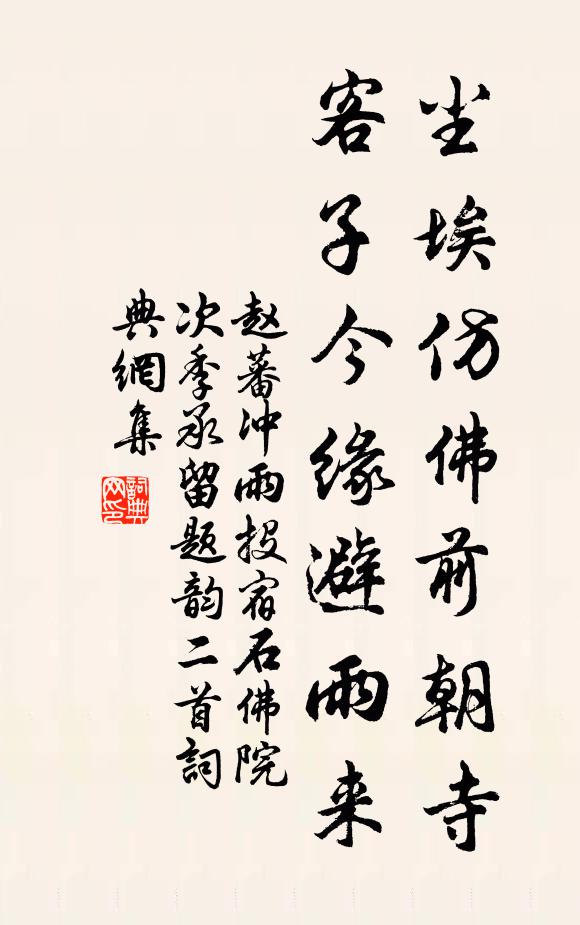 尘埃仿佛前朝寺
客子今缘避雨来
赵蕃冲雨投宿石佛院
次季承留题韵二首词
典網集
詞典
网印